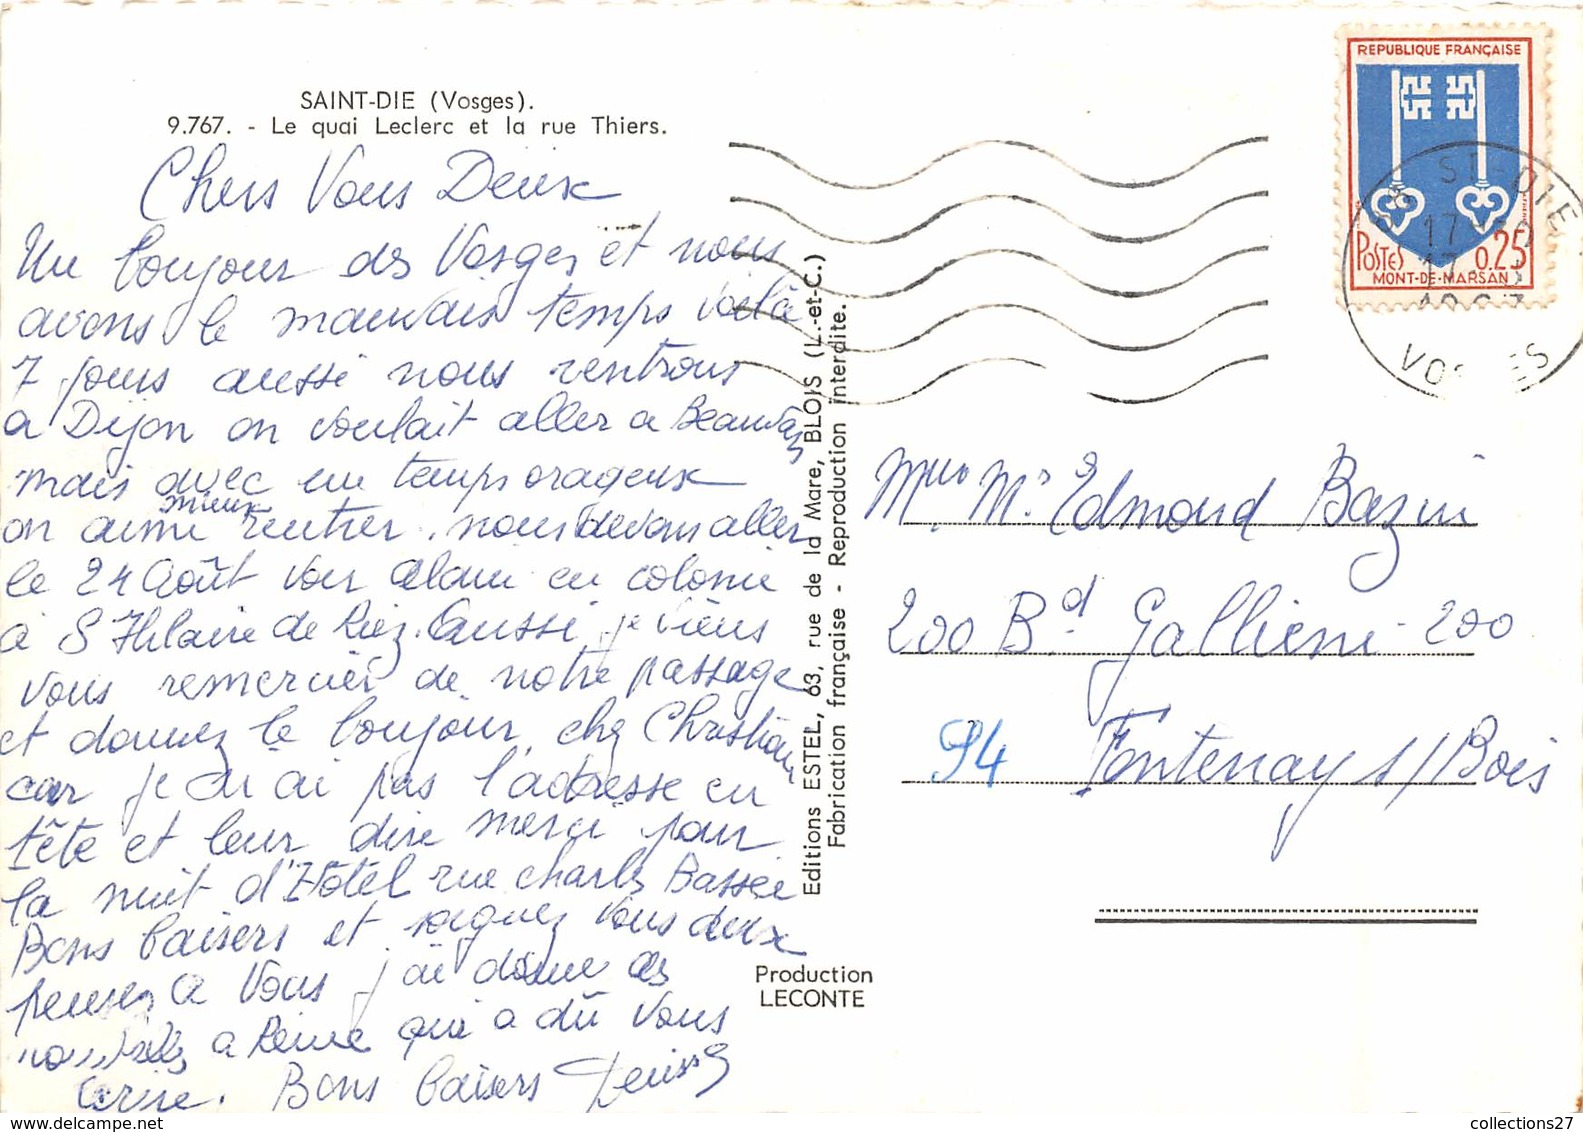 SAINT-DIE (Vosges).
9.767. - Le quai Leclerc et la rue Thiers.
Chers Vous Deux
Un bonjour des Vosges et nous
avons le mauvais temps voilà
7 jours aussi nous rentrons
a Dijon on voulait aller a Beauvais
mais avec un temps orageux
on aime mieux rentrer. nous devons aller
le 24 Août voir Alain en colonie
à St Hilaire de Riez. aussi je viens
vous remercier de notre passage
et donnez le bonjour chez Christian
car je n'ai pas l'adresse en
tête et leur dire merci pour
la nuit d'Hôtel rue charles Bassée
Bons baisers et soignez vous deux
pensez a Vous j'ai donné des
nouvelles a Reine qui a dû vous
écrire. Bons baisers Denise
Editions ESTEL, 63, rue de la Mare, BLOIS (L.-et-C.)
Fabrication française - Reproduction interdite.
Production
LECONTE
REPUBLIQUE FRANÇAISE
POSTES 0,25
MONT-DE-MARSAN
88 ST-DIE
17
VOSGES
Mme Mr Edmond Bazin
200 Bd Gallieni - 200
94 Fontenay s/Bois
collections27